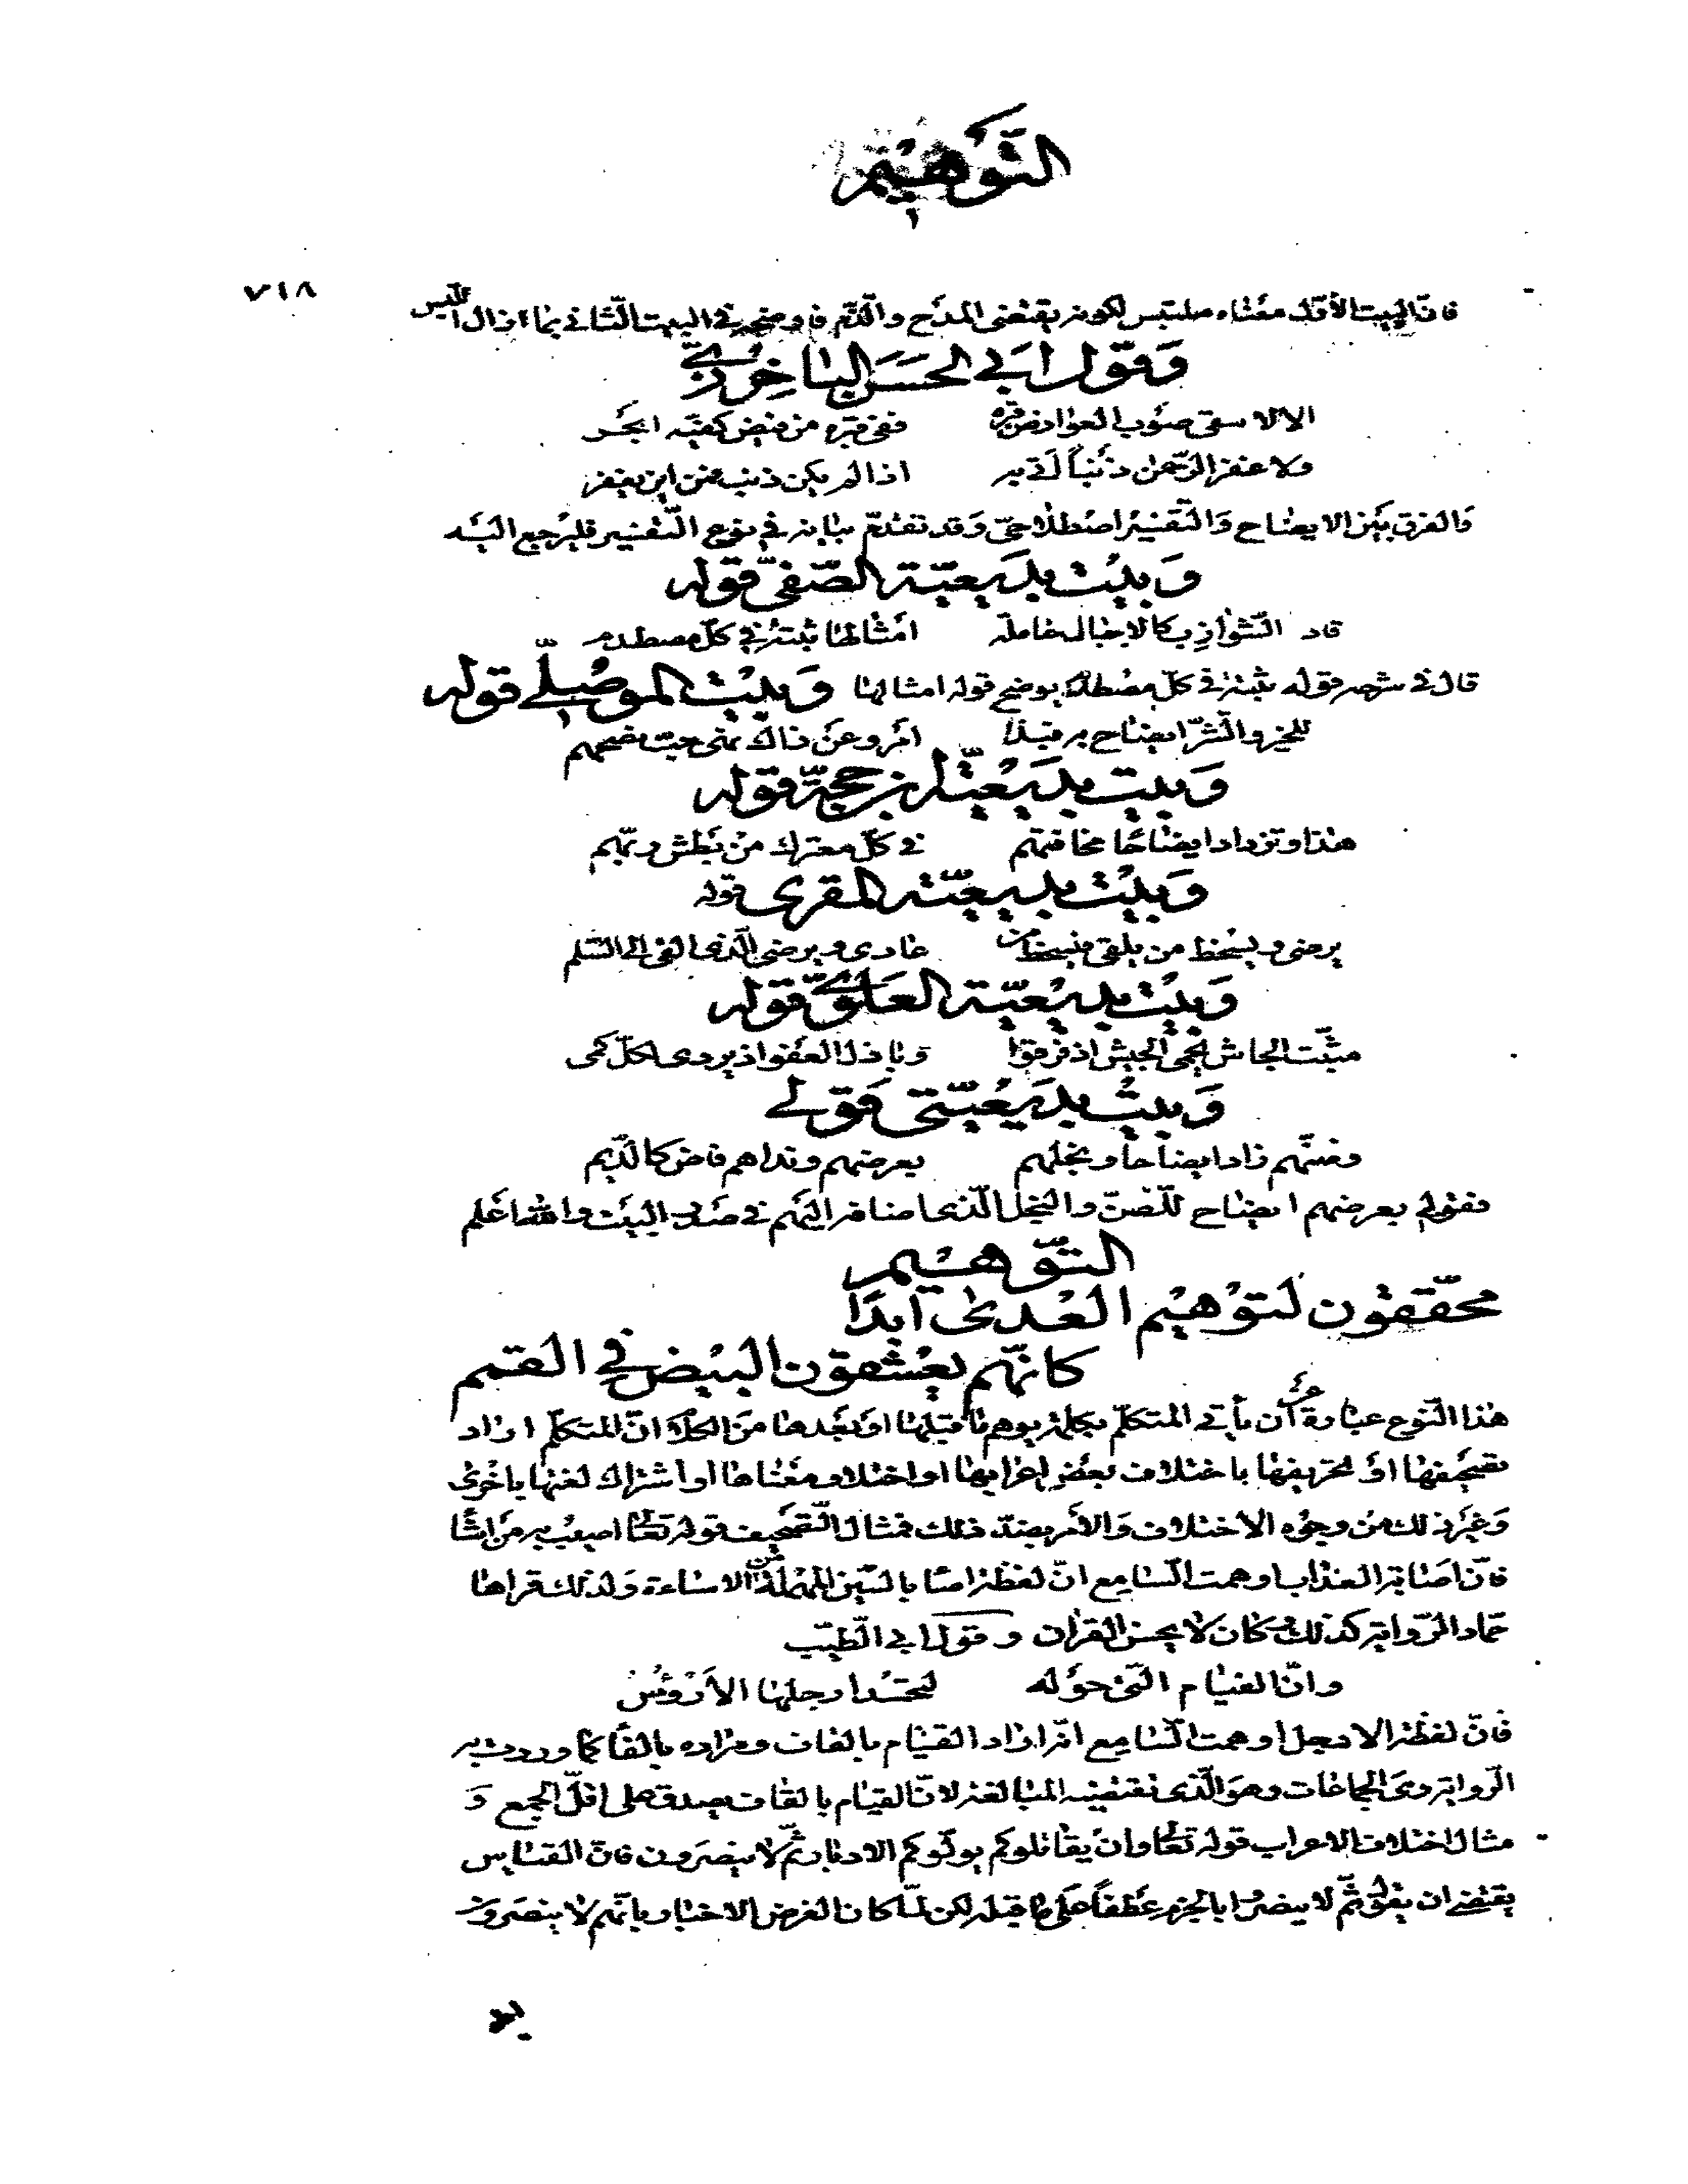 التوهيم
٧١٨
فانّ البيت الأوّل معناه ملتبس لكونه يقتضى المدح والذّم فاوضحه في البيت الثّاني بما ازال اللّبس
وقول ابي الحسن الباخرزي
الا لا سقى صوب العوارض قبره ففى قبره من فيض كفيّه ابحر
ولا غفر الرّحمن ذنباً لقى به اذا لم يكن ذنب فمن اين يغفر
والفرق بين الايضاح والتّفسير اصطلاحىّ وقد تقدّم بيانه في نوع التّفسير فليرجع اليه
وبيت بديعيّة الصّفىّ قوله
قاد الشّوازب كالاجبال حاملة امثالها ثبتة في كلّ مصطدم
قال في شرحه قوله ثبتة في كلّ مصطدم يوضح قوله امثالها وبيت الموصلّي قوله
للخير والشّرّ ايضاح به قبلا امر وعن ذاك نهى حيث
وبيت بديعيّة ابن حجّة قوله
هذا وتزداد ايضاحا مخافتهم في كلّ معترك من بطش ربّهم
وبيت بديعيّة المقرى قوله
يرضى ويسخط من يلقى فيسخط من عادى ويرضى الّذى القى الى السّلم
وبيت بديعيّة العلوىّ قوله
مثّبت الجاش يحمى الجيش اذ فرقوا وباذل العفو اذ يردى لكلّ كمى
وبيت بديعيّتى قولي
وضنّهم زاد ايضاحا وبخلهم بعرضهم ونداهم فاض كالدّيم
فقولي بعرضهم ايضاح للضّنّ والبخل الّذى اضافه اليهم في صدر البيت والله اعلم
التّوهيم
محقّقون لتوهيم العدى ابدا
كانّهم يعشقون البيض في القمم
هذا النّوع عبارة عن أن يأتي المتكلّم بكلمة يوهم ما قبلها او بعدها من الكلام انّ المتكلّم اراد
تصحيفها او تحريفها باختلاف بعض اعرابها او اختلاف معناها او اشتراك لغتها باخرى
وغير ذلك من وجوه الاختلاف والأمر بضدّ ذلك فمثال التّصحيف قوله تعالى اصيب به من اشا
فانّ اصابة العذاب اوهمت السّامع انّ لفظة اشا بالسّين المهملة من الاساءة ولذلك قراها
حماد الرّواية كذلك وكان لا يحسن القران وقول ابي الطّيّب
وانّ الفيام الّتى حوله لتحسد ارجلها الأرؤس
فانّ لفظة الارجل اوهمت السّامع انّه اراد القيام بالقاف ومراده بالفا كما وردت به
الرّواية وهى الجماعات وهو الّذى تقتضيه المبالغة لانّ القيام بالقاف يصدق على اقلّ الجمع و
مثال اختلاف الاعراب قوله تعالى وان يقاتلوكم يولّوكم الادبار ثمّ لا ينصرون فانّ القياس
يقتضى ان يقول ثمّ لا ينصروا بالجزم عطفاً على ما قبله لكن لمّا كان الغرض الاخبار بانّهم لا ينصرون